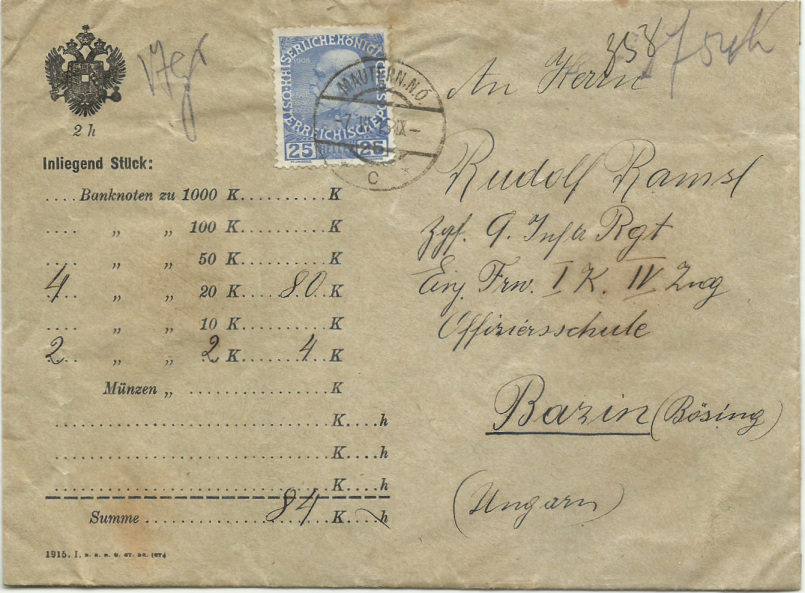 2 h
Inliegend Stück:
.... Banknoten zu 1000 K..........K
.... „ „ 100 K..........K
.... „ „ 50 K..........K
4 „ „ 20 K....80..K
.... „ „ 10 K..........K
2 „ „ 2 K.......4..K
Münzen „ ................K
................K....h
................K....h
................K....h
Summe ............84....K....h
1915. I.
KAISERLICHE KÖNIGL
1908
ÖSTERREICHISCHE POST
25 HELLER 25
MAUTERN. N.Ö
C
17gr
858
An Herrn
Rudolf Ramsl
Zgf. 9. Inft Rgt
Einj. Frw. I K. IV Zug
Offiziersschule
Bazin (Bösing)
(Ungarn)